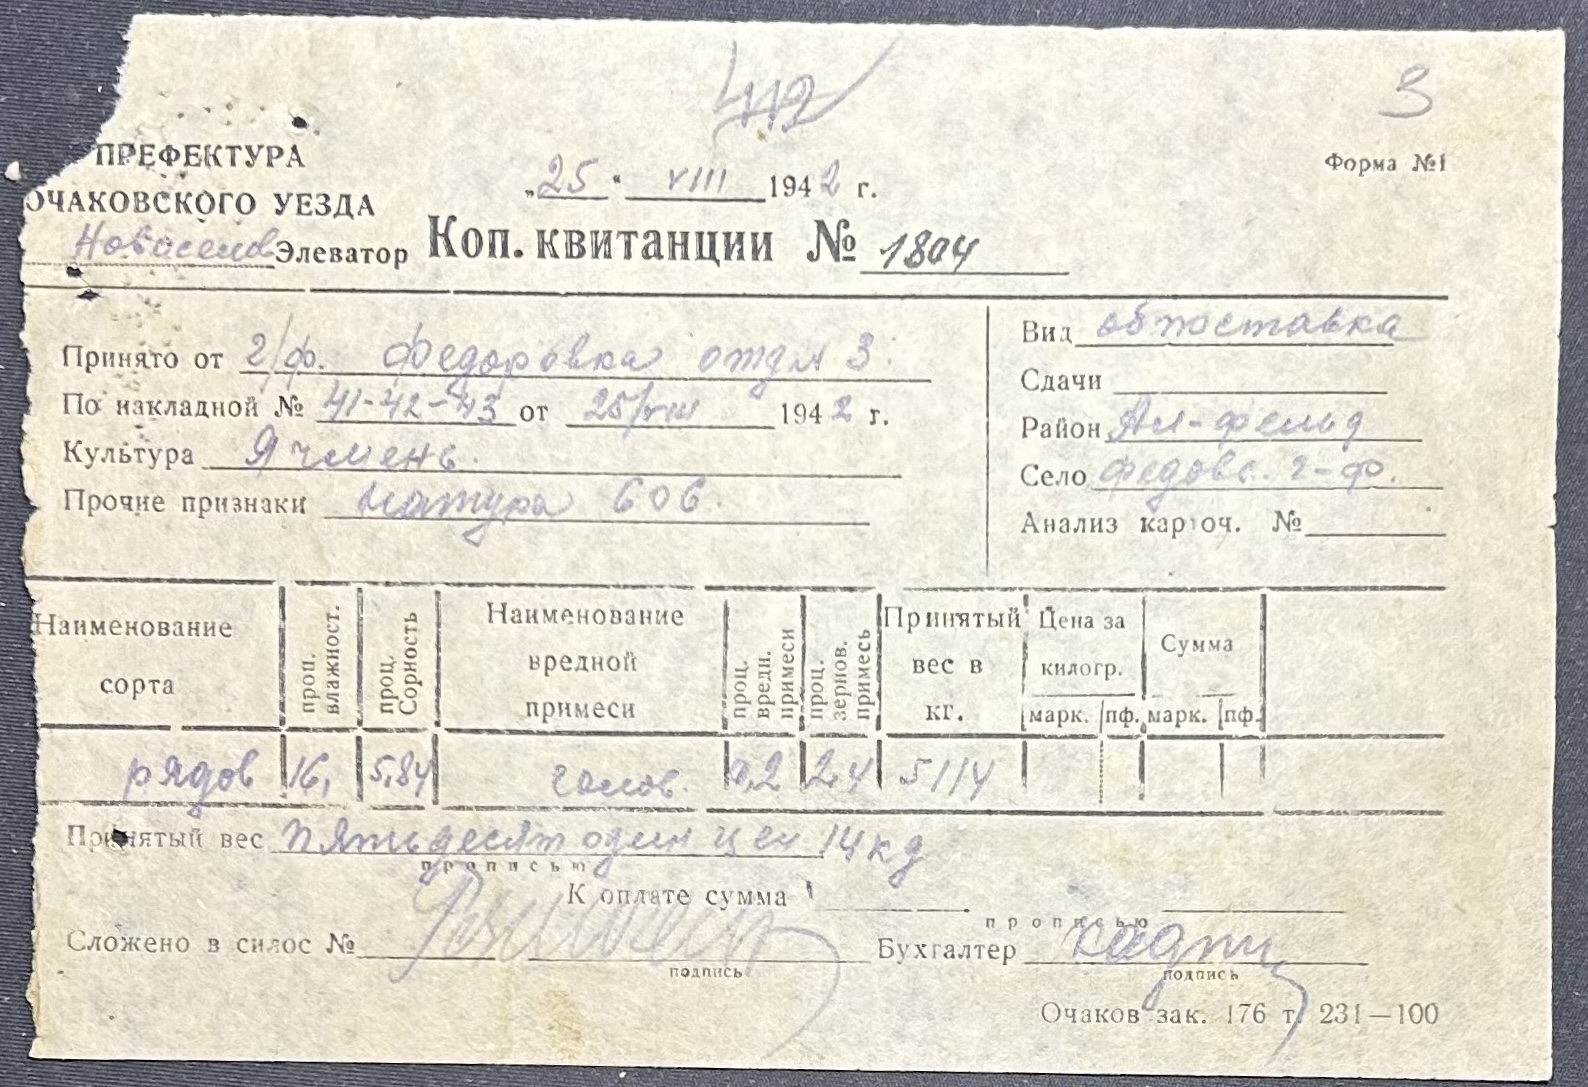 442
3
ПРЕФЕКТУРА
ОЧАКОВСКОГО УЕЗДА
„25“ VIII 1942 г.
Форма №1
Новоселов Элеватор Коп. квитанции № 1804
Принято от г/ф. Федоровка отдл 3
По накладной № 41-42-43 от 25/VIII 1942 г.
Культура Ячмень.
Прочие признаки натура 606.
Вид обпоставка
Сдачи
Район Ал-фельд
Село Федовс. г-ф.
Анализ карточ. №
Наименование сорта
проц. влажност.
проц. Сорность
Наименование вредной примеси
проц. вредн. примеси
проц. зернов. примесь
Принятый вес в кг.
Цена за килогр.
Сумма
марк. пф. марк. пф.
рядов 16, 5,84 голов. 0,2 2,4 5114
Принятый вес пятьдесят один цен 14 кг
прописью
К оплате сумма
прописью
Сложено в силос № Бухгалтер
подпись подпись
Очаков зак. 176 т. 231—100